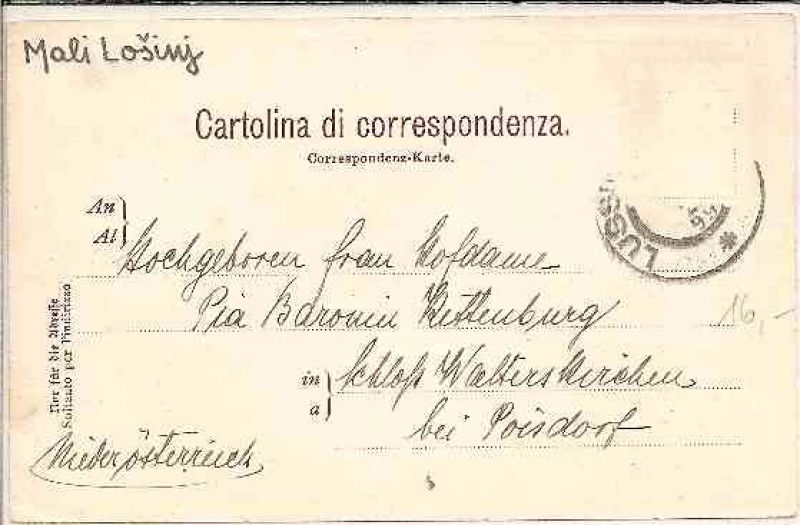 Mali Lošinj
Cartolina di correspondenza.
Correspondenz-Karte.
An
Al
Hochgeboren Frau Hofdame
Pia Baronin Kettenburg
in
a
Schloß Walterskirchen
bei Poisdorf
Niederösterreich
Nur für die Adresse
Soltanto per l'indirizzo
LUSS
16,-